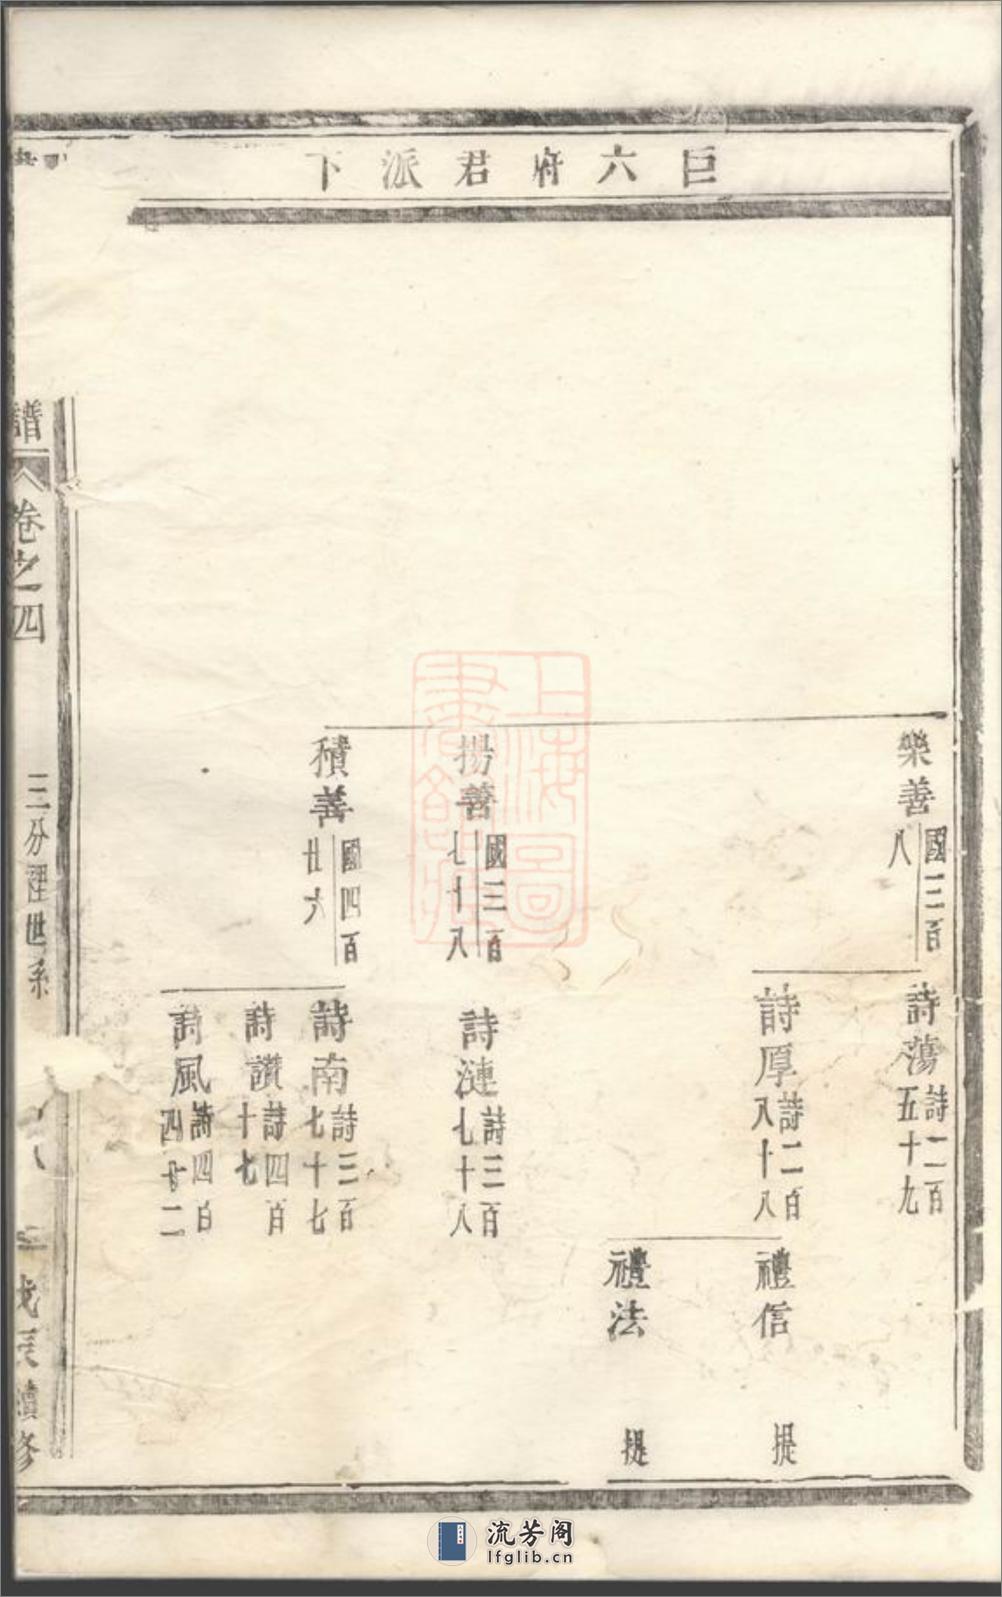 巨六府君派下
樂善
國三百
八
詩蕩
詩二百
五十九
詩厚
詩二百
八十八
禮信
提
禮法
提
揚善
國三百
七十八
詩漣
詩三百
七十八
積善
國四百
廿六
詩南
詩三百
七十七
詩讃
詩四百
十七
詩風
詩四百
四十二
譜
卷之四
三分裡世系
戊辰續修
上海圖書館藏
流芳阁
lfglib.cn